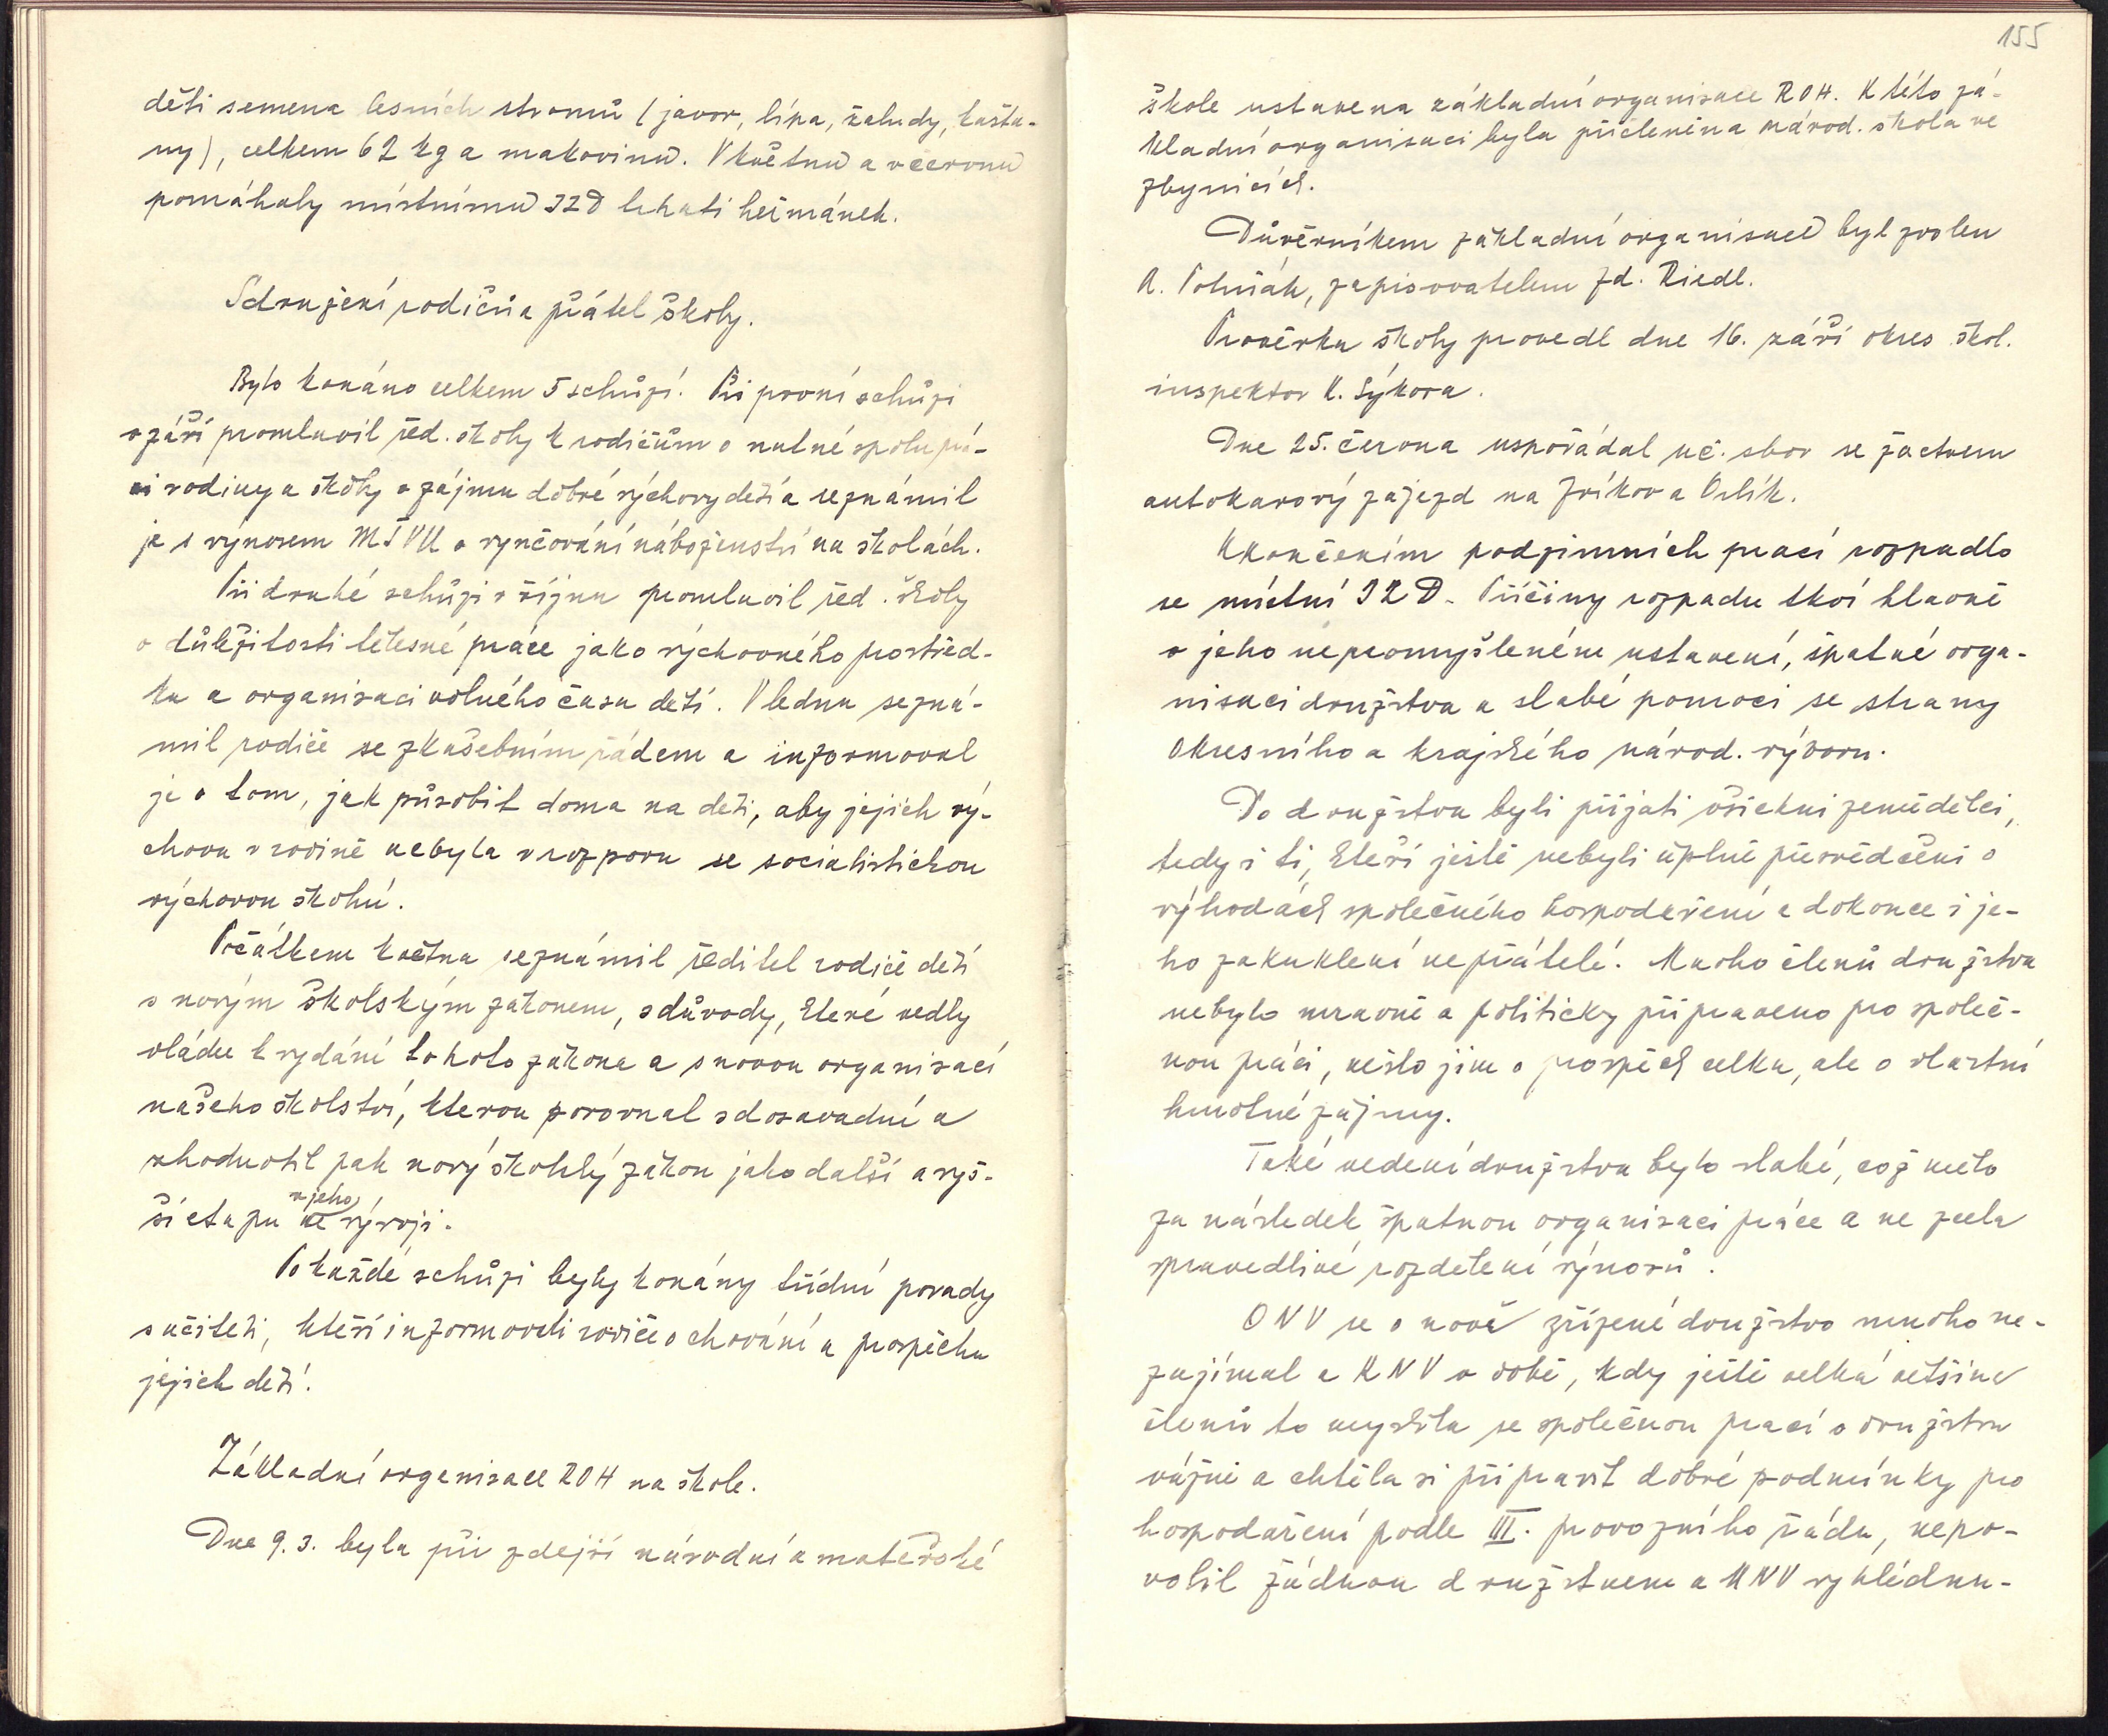 děti semena lesních stromů (javor, lípa, žaludy, kašta-
ny), celkem 62 kg a makovinu. V květnu a v červnu
pomáhaly místnímu JZD trhati heřmánek.
Sdružení rodičů a přátel školy.
Bylo konáno celkem 5 schůzí. Při první schůzi
v září promluvil řed. školy k rodičům o nutné spoluprá-
ci rodiny a školy v zájmu dobré výchovy dětí a seznámil
je s výnosem MŠVU o vyučování náboženství na školách.
Při druhé schůzi v říjnu promluvil řed. školy
o důležitosti tělesné práce jako výchovného prostřed-
ku a organisaci volného času dětí. V lednu sezná-
mil rodiče se zkušebním řádem a informoval
je o tom, jak působit doma na děti, aby jejich vý-
chova v rodině nebyla v rozporu se socialistickou
výchovou školní.
Počátkem května seznámil ředitel rodiče dětí
s novým školským zákonem, s důvody, které vedly
vládu k vydání tohoto zákona a s novou organisací
našeho školství, kterou porovnal s dosavadní a
zhodnotil pak nový školský zákon jako další a vyš-
ší etapu v jeho vývoji.
Po každé schůzi byly konány třídní porady
s učiteli, kteří informovali rodiče o chování a prospěchu
jejich dětí.
Základní organisace ROH na škole.
Dne 9. 3. byla při zdejší národní a mateřské
155
škole ustavena základní organisace ROH. K této zá-
kladní organisaci byla přičleněna národ. škola ve
Zbynicích.
Důvěrníkem základní organisace byl zvolen
A. Polniák, zapisovatelem Zd. Riedl.
Prověrku školy provedl dne 16. září okres. škol.
inspektor K. Sýkora.
Dne 25. června uspořádal uč. sbor se žactvem
autokarový zájezd na Zvíkov a Orlík.
Ukončením podzimních prací rozpadlo
se místní JZD. Příčiny rozpadu tkví hlavně
v jeho nepromyšleném ustavení, špatné orga-
nisaci družstva a slabé pomoci se strany
okresního a krajského národ. výboru.
Do družstva byli přijati všichni zemědělci,
tedy i ti, kteří ještě nebyli úplně přesvědčeni o
výhodách společného hospodaření a dokonce i je-
ho zakuklení nepřátelé. Mnoho členů družstva
nebylo mravně a politicky připraveno pro společ-
nou práci, nešlo jim o prospěch celku, ale o vlastní
hmotné zájmy.
Také vedení družstva bylo slabé, což mělo
za následek špatnou organisaci práce a ne zcela
spravedlivé rozdělení výnosů.
ONV se o nově zřízené družstvo mnoho ne-
zajímal a KNV v době, kdy ještě velká většina
členů to myslila se společnou prací v družstvu
vážně a chtěla si připravit dobré podmínky pro
hospodaření podle III. provozního řádu, nepo-
volil žádnou družstvem a MNV vyhlédnu-